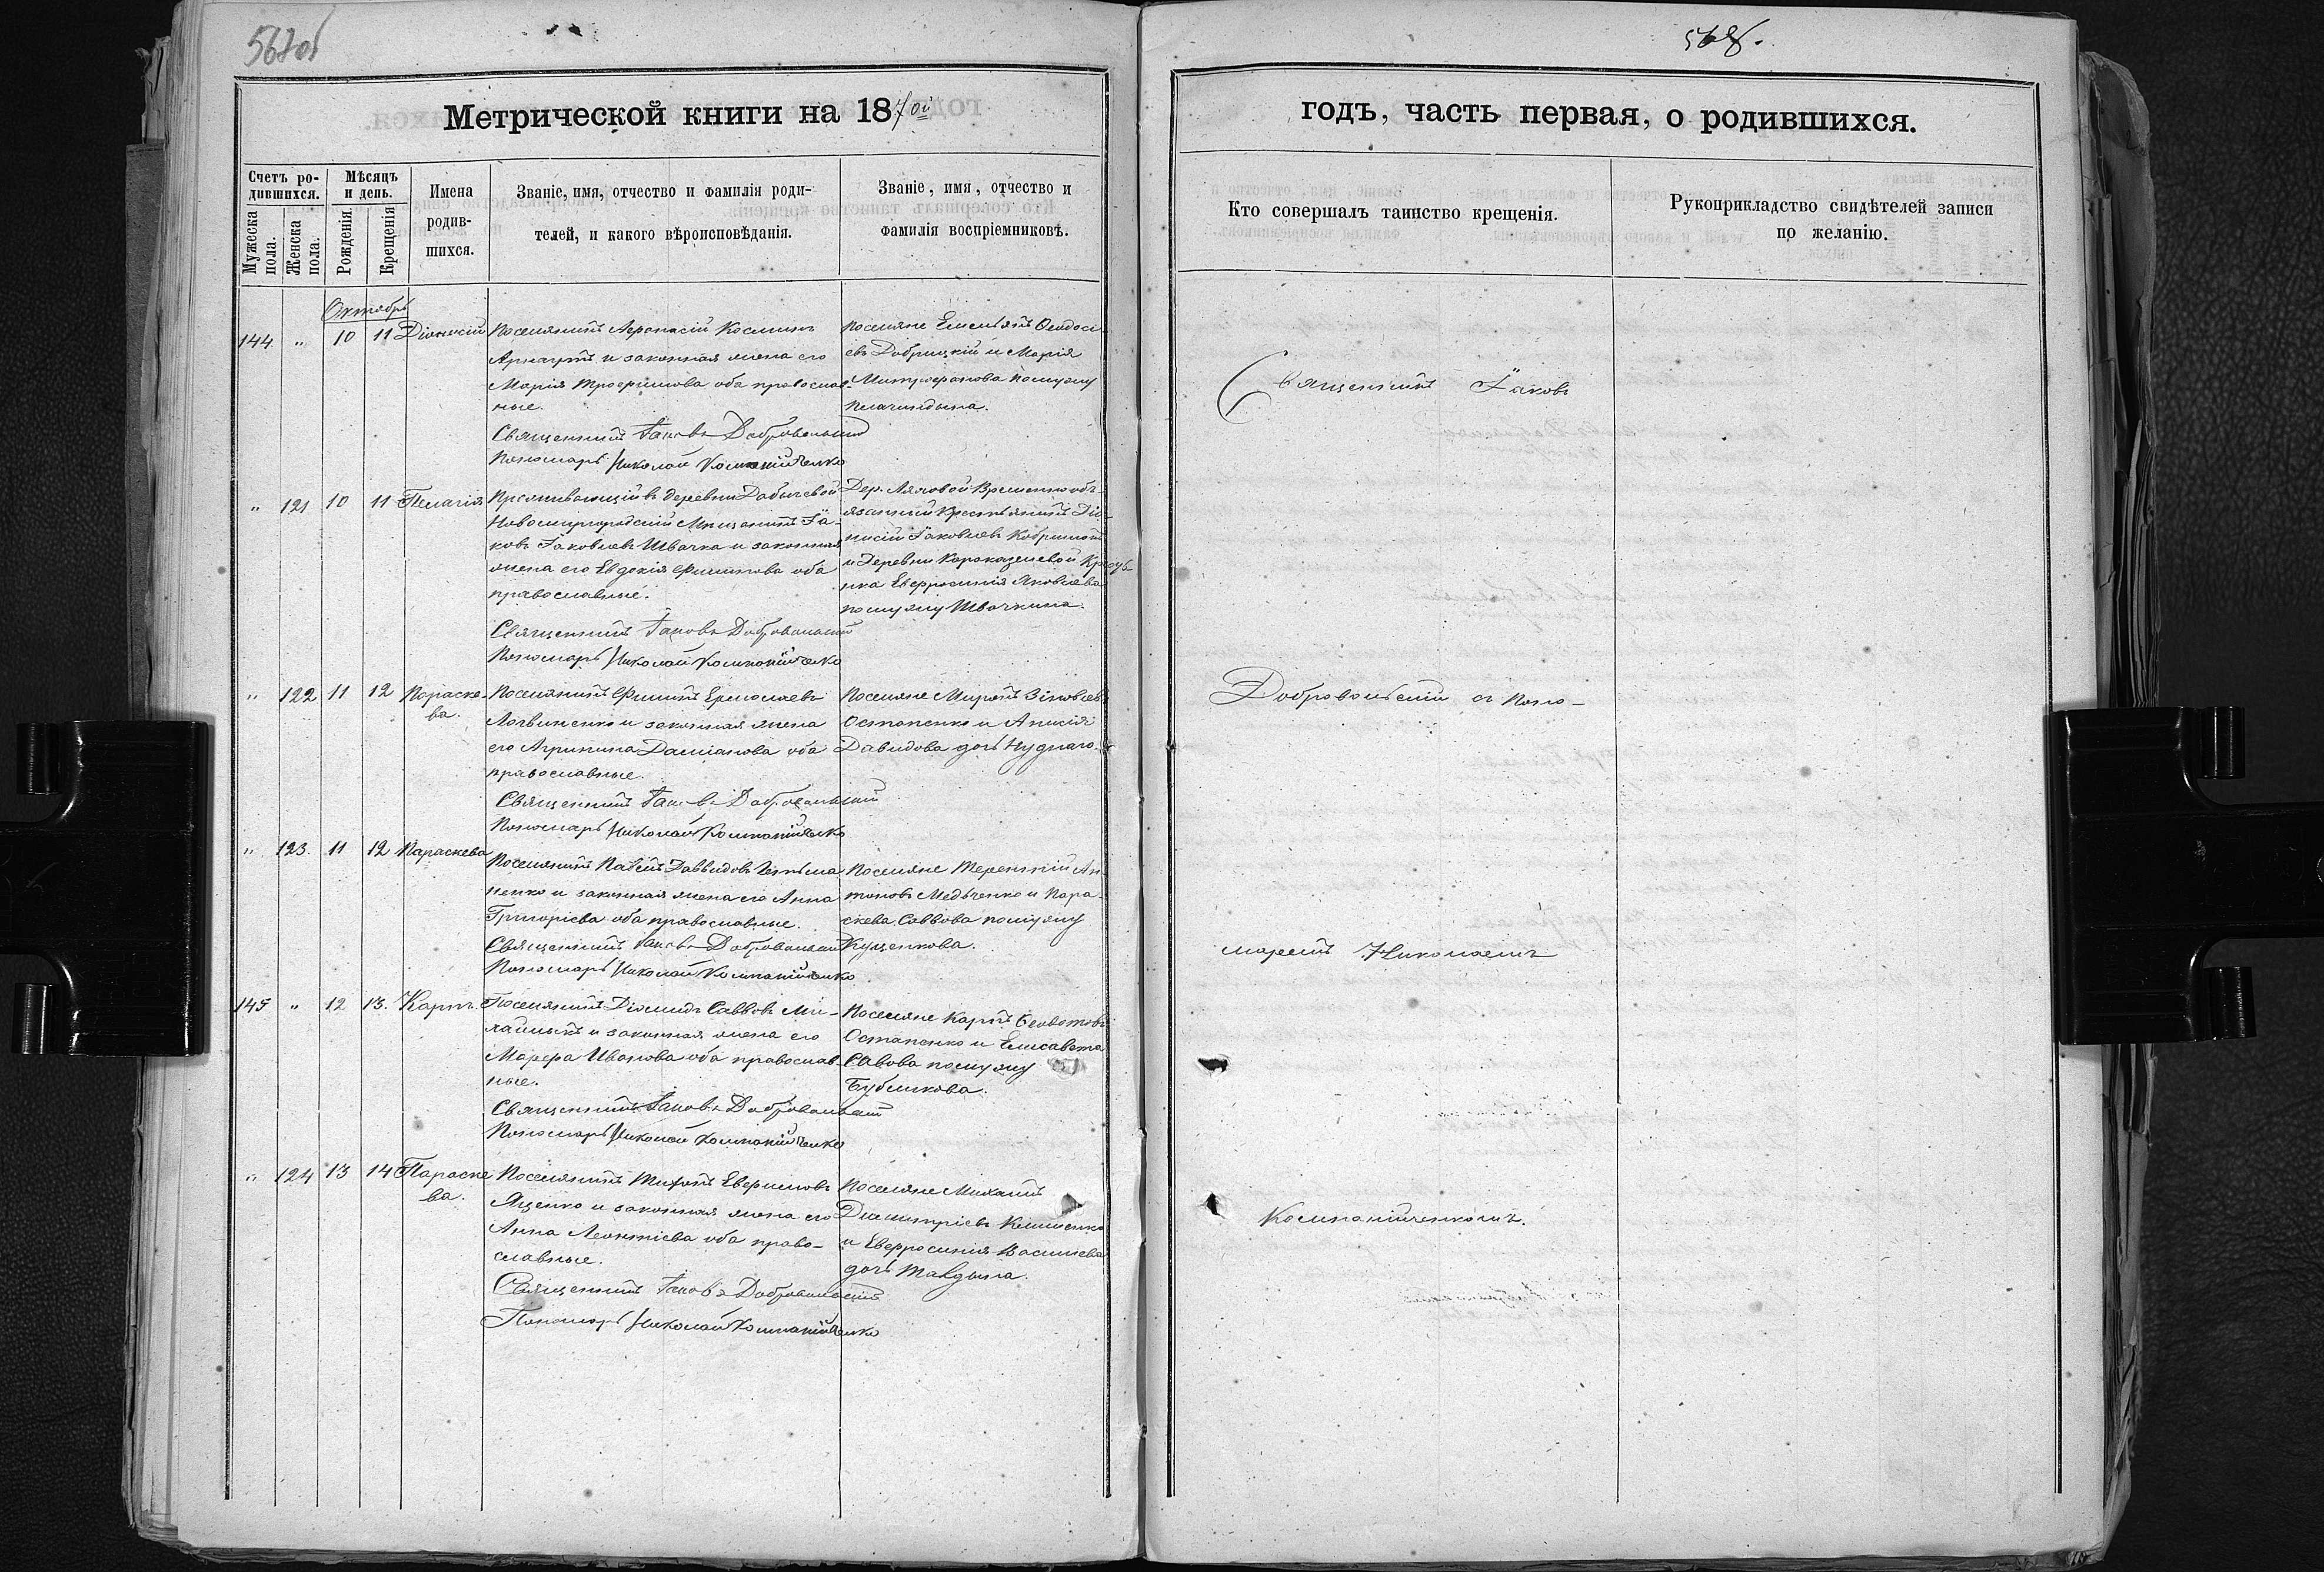 567об
568.
Метрической книги на 1870й
годъ, часть первая, о родившихся.
Счетъ родившихся.
Мужеска пола.
Женска пола.
Мѣсяцъ и день.
Рожденія.
Крещенія.
Имена родившихся.
Званіе, имя, отчество и фамилія родителей, и какого вѣроисповѣданія.
Званіе, имя, отчество и фамилія воспріемниковъ.
Кто совершалъ таинство крещенія.
Рукоприкладство свидѣтелей записи по желанію.
Октябрь
144 " 10 11 Діонисій
Поселянинъ Афанасій Косминъ
Арнаутъ и законная жена его
Марія Трофимова оба православ-
ные.
Священникъ Іаковъ Добровольскій
Пономарь Николай Компанійченко
Поселяне Емельянъ Феодосі-
евъ Добрицкій и Марія
Митрофанова помужу
" 121 10 11 Пелагія
Проживающій въ деревни Добычевой
Новомиргородскій Мѣщанинъ Іа-
ковъ Іаковлевъ Швачка и законная
жена его Евдокія Филипова оба
православные.
Священникъ Іаковъ Добровольскій
Пономарь Николай Компанійченко
Дер. Ляховой Временно обя-
занный Крестьянинъ Діо-
нисій Іаковлевъ
и Деревни
Евфросинія Яковлева
помужу Швачкина.
" 122 11 12 Параске-
ва.
Поселянинъ Филипъ Ермолаевъ
Логвиненко и законная жена
его Агрипина Даміанова оба
православные.
Священникъ Іаковъ Добровольскій
Пономарь Николай Компанійченко
Поселяне Миронъ Зіновіевъ
Остапенко и Анисія
Давидова дочь Нуднаго.
" 123. 11 12 Параскева
Поселянинъ Павелъ Давыдовъ Гетьма
ненко и законная жена его Анна
Григоріева оба православные.
Священникъ Іаковъ Добровольскій
Пономарь Николай Компанійченко
Поселяне Терентій Ан-
тоновъ Медвченко и Пара-
скева Саввова помужу
Куценкова.
145 " 12 13. Карпъ.
Поселянинъ Діомидъ Саввовъ Ми-
хайлыкъ и законная жена его
Марфа Иванова оба православ-
ные.
Священникъ Іаковъ Добровольскій
Пономарь Николай Компанійченко
Поселяне Карпъ
Остапенко и Елисавета
Савова помужу
Бубликова.
" 124 13 14 Параске
ва.
Поселянинъ Тихонъ Евфимовъ
Яценко и законная жена его
Анна Леонтіева оба право-
славные.
Священникъ Іаковъ Добровольскій
Пономарь Николай Компанійченко
Поселяне Михаилъ
Димитріевъ Клименко
и Евфросинія Васильева
дочь
Священникъ Іаковъ
Добровольскій съ Поно-
маремъ Николаемъ
Компанійченкомъ.